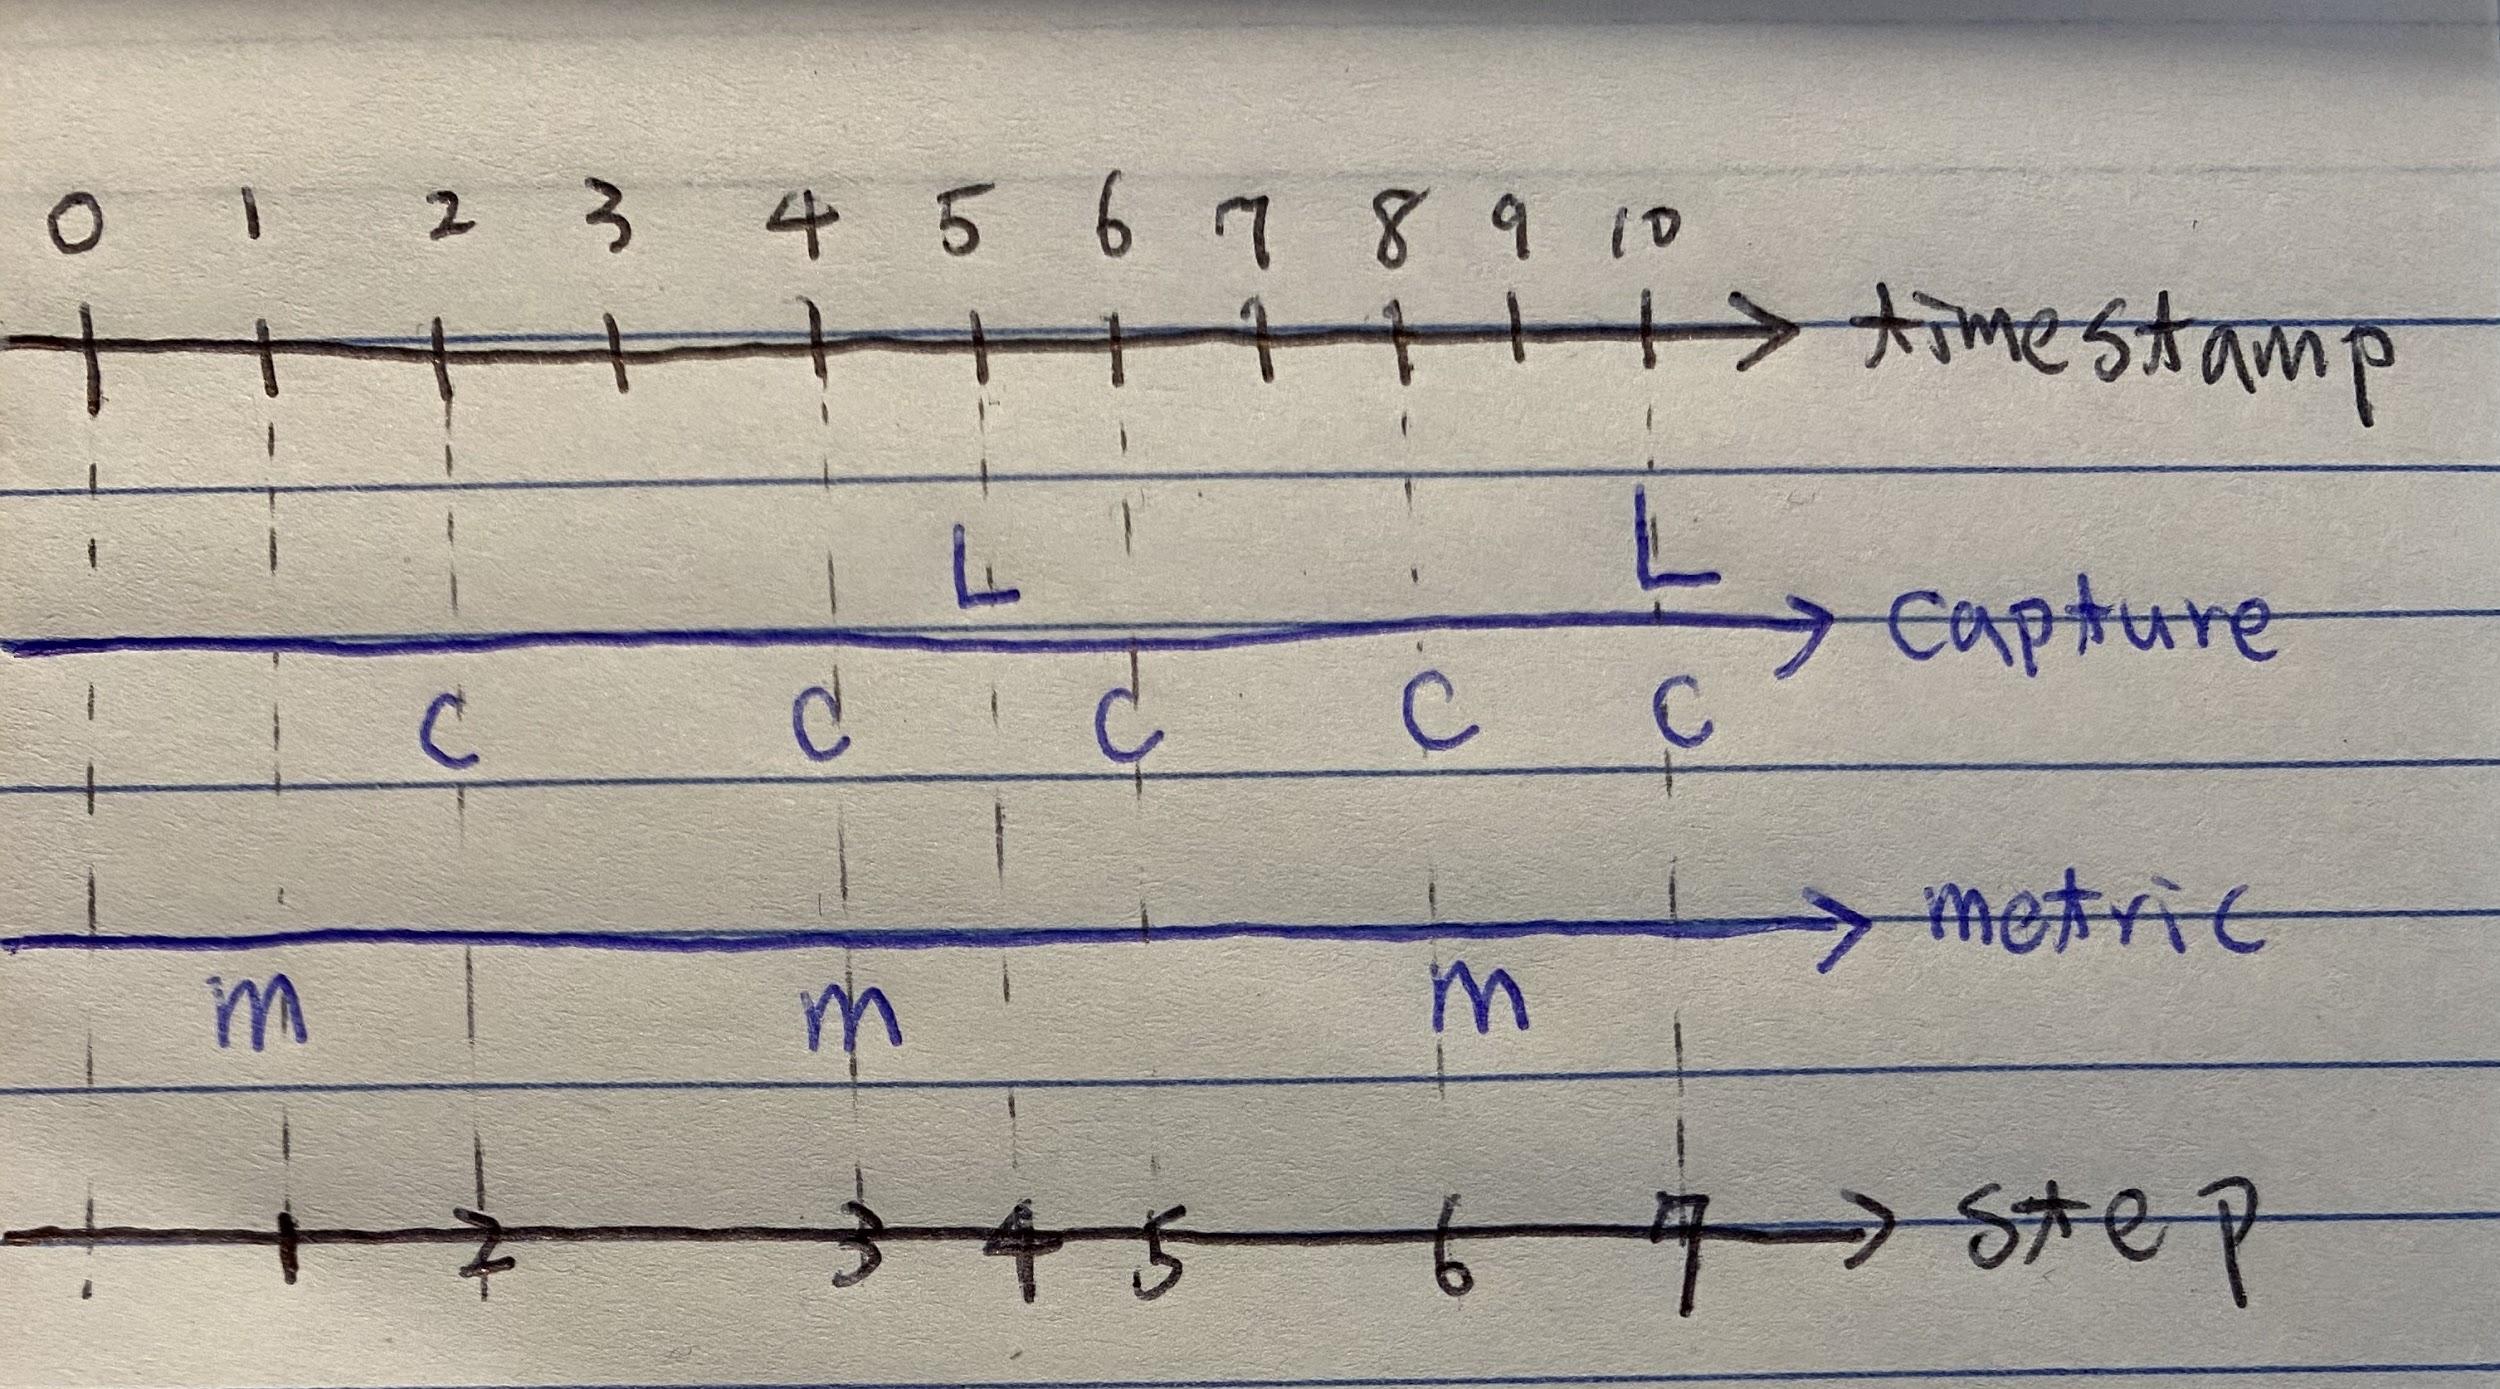 0 1 2 3 4 5 6 7 8 9 10
timestamp
L L
capture
C C C C C
metric
m m m
1 2 3 4 5 6 7 step